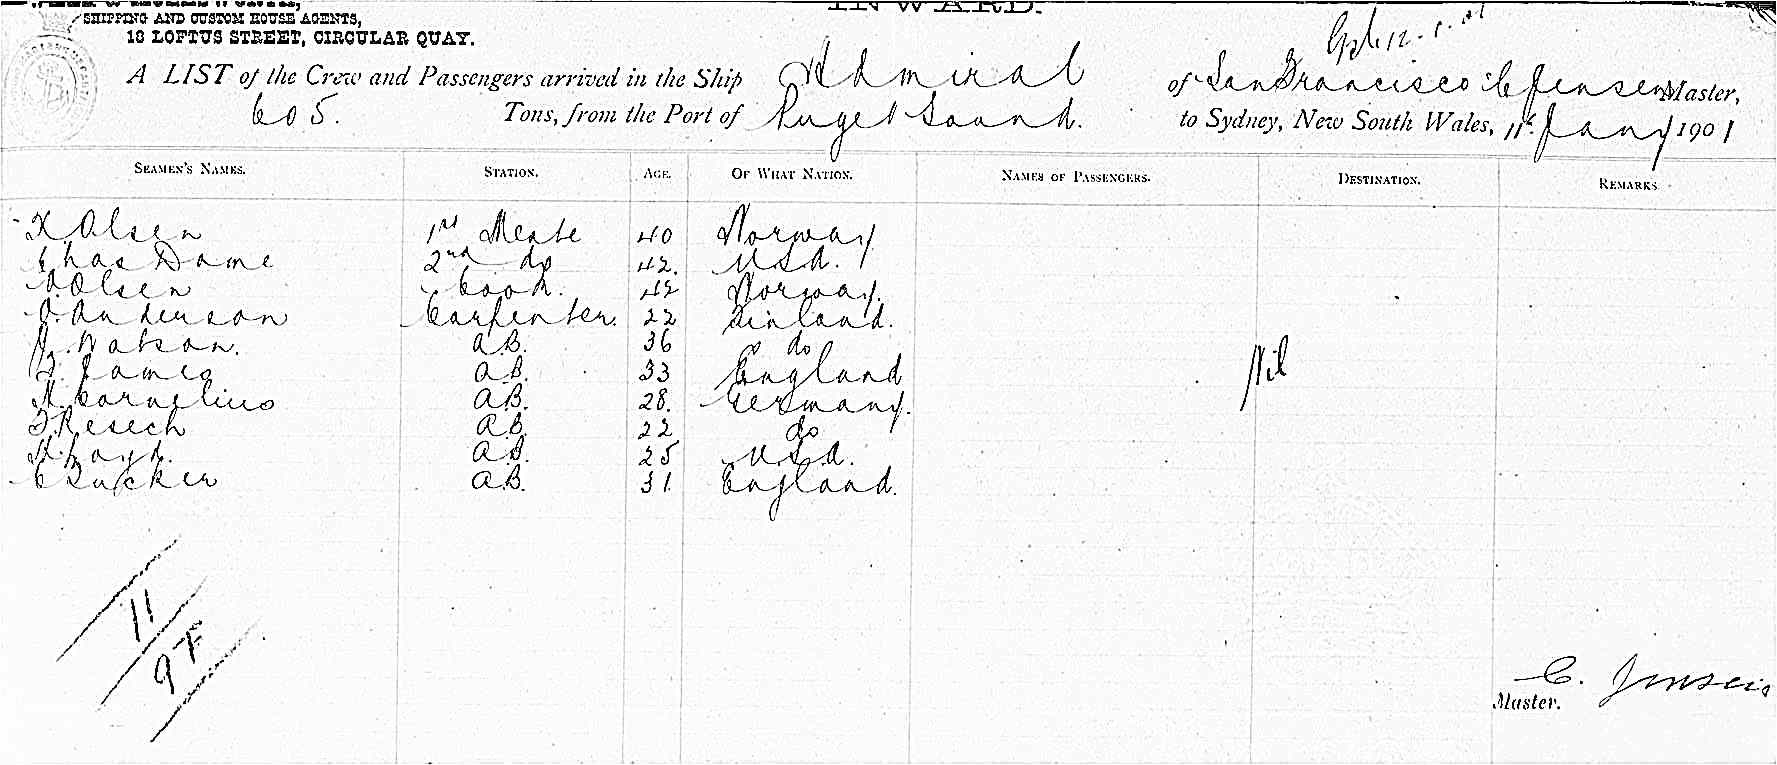 INWARD.
SHIPPING AND CUSTOM HOUSE AGENTS,
13 LOFTUS STREET, CIRCULAR QUAY.
A LIST of the Crew and Passengers arrived in the Ship Admiral of San Francisco C Jensen Master,
605. Tons, from the Port of Puget Sound. to Sydney, New South Wales, 11th Jany 1901
SEAMEN'S NAMES. STATION. AGE. OF WHAT NATION. NAMES OF PASSENGERS. DESTINATION. REMARKS
K Olsen 1st Mate 40 Norway
Chas Dame 2nd do 42. U.S.A.
A. Olsen Cook. 42 Norway.
O. Anderson Carpenter. 22 Finland.
J. Watson. A.B. 36 do
F. James A.B. 33 England Nil
H. Cornelius A.B. 28. Germany.
F. Resech A.B. 22 do
A.B. 25 U.S.A.
C A.B. 31 England.
11
9F
C. Jensen
Master.